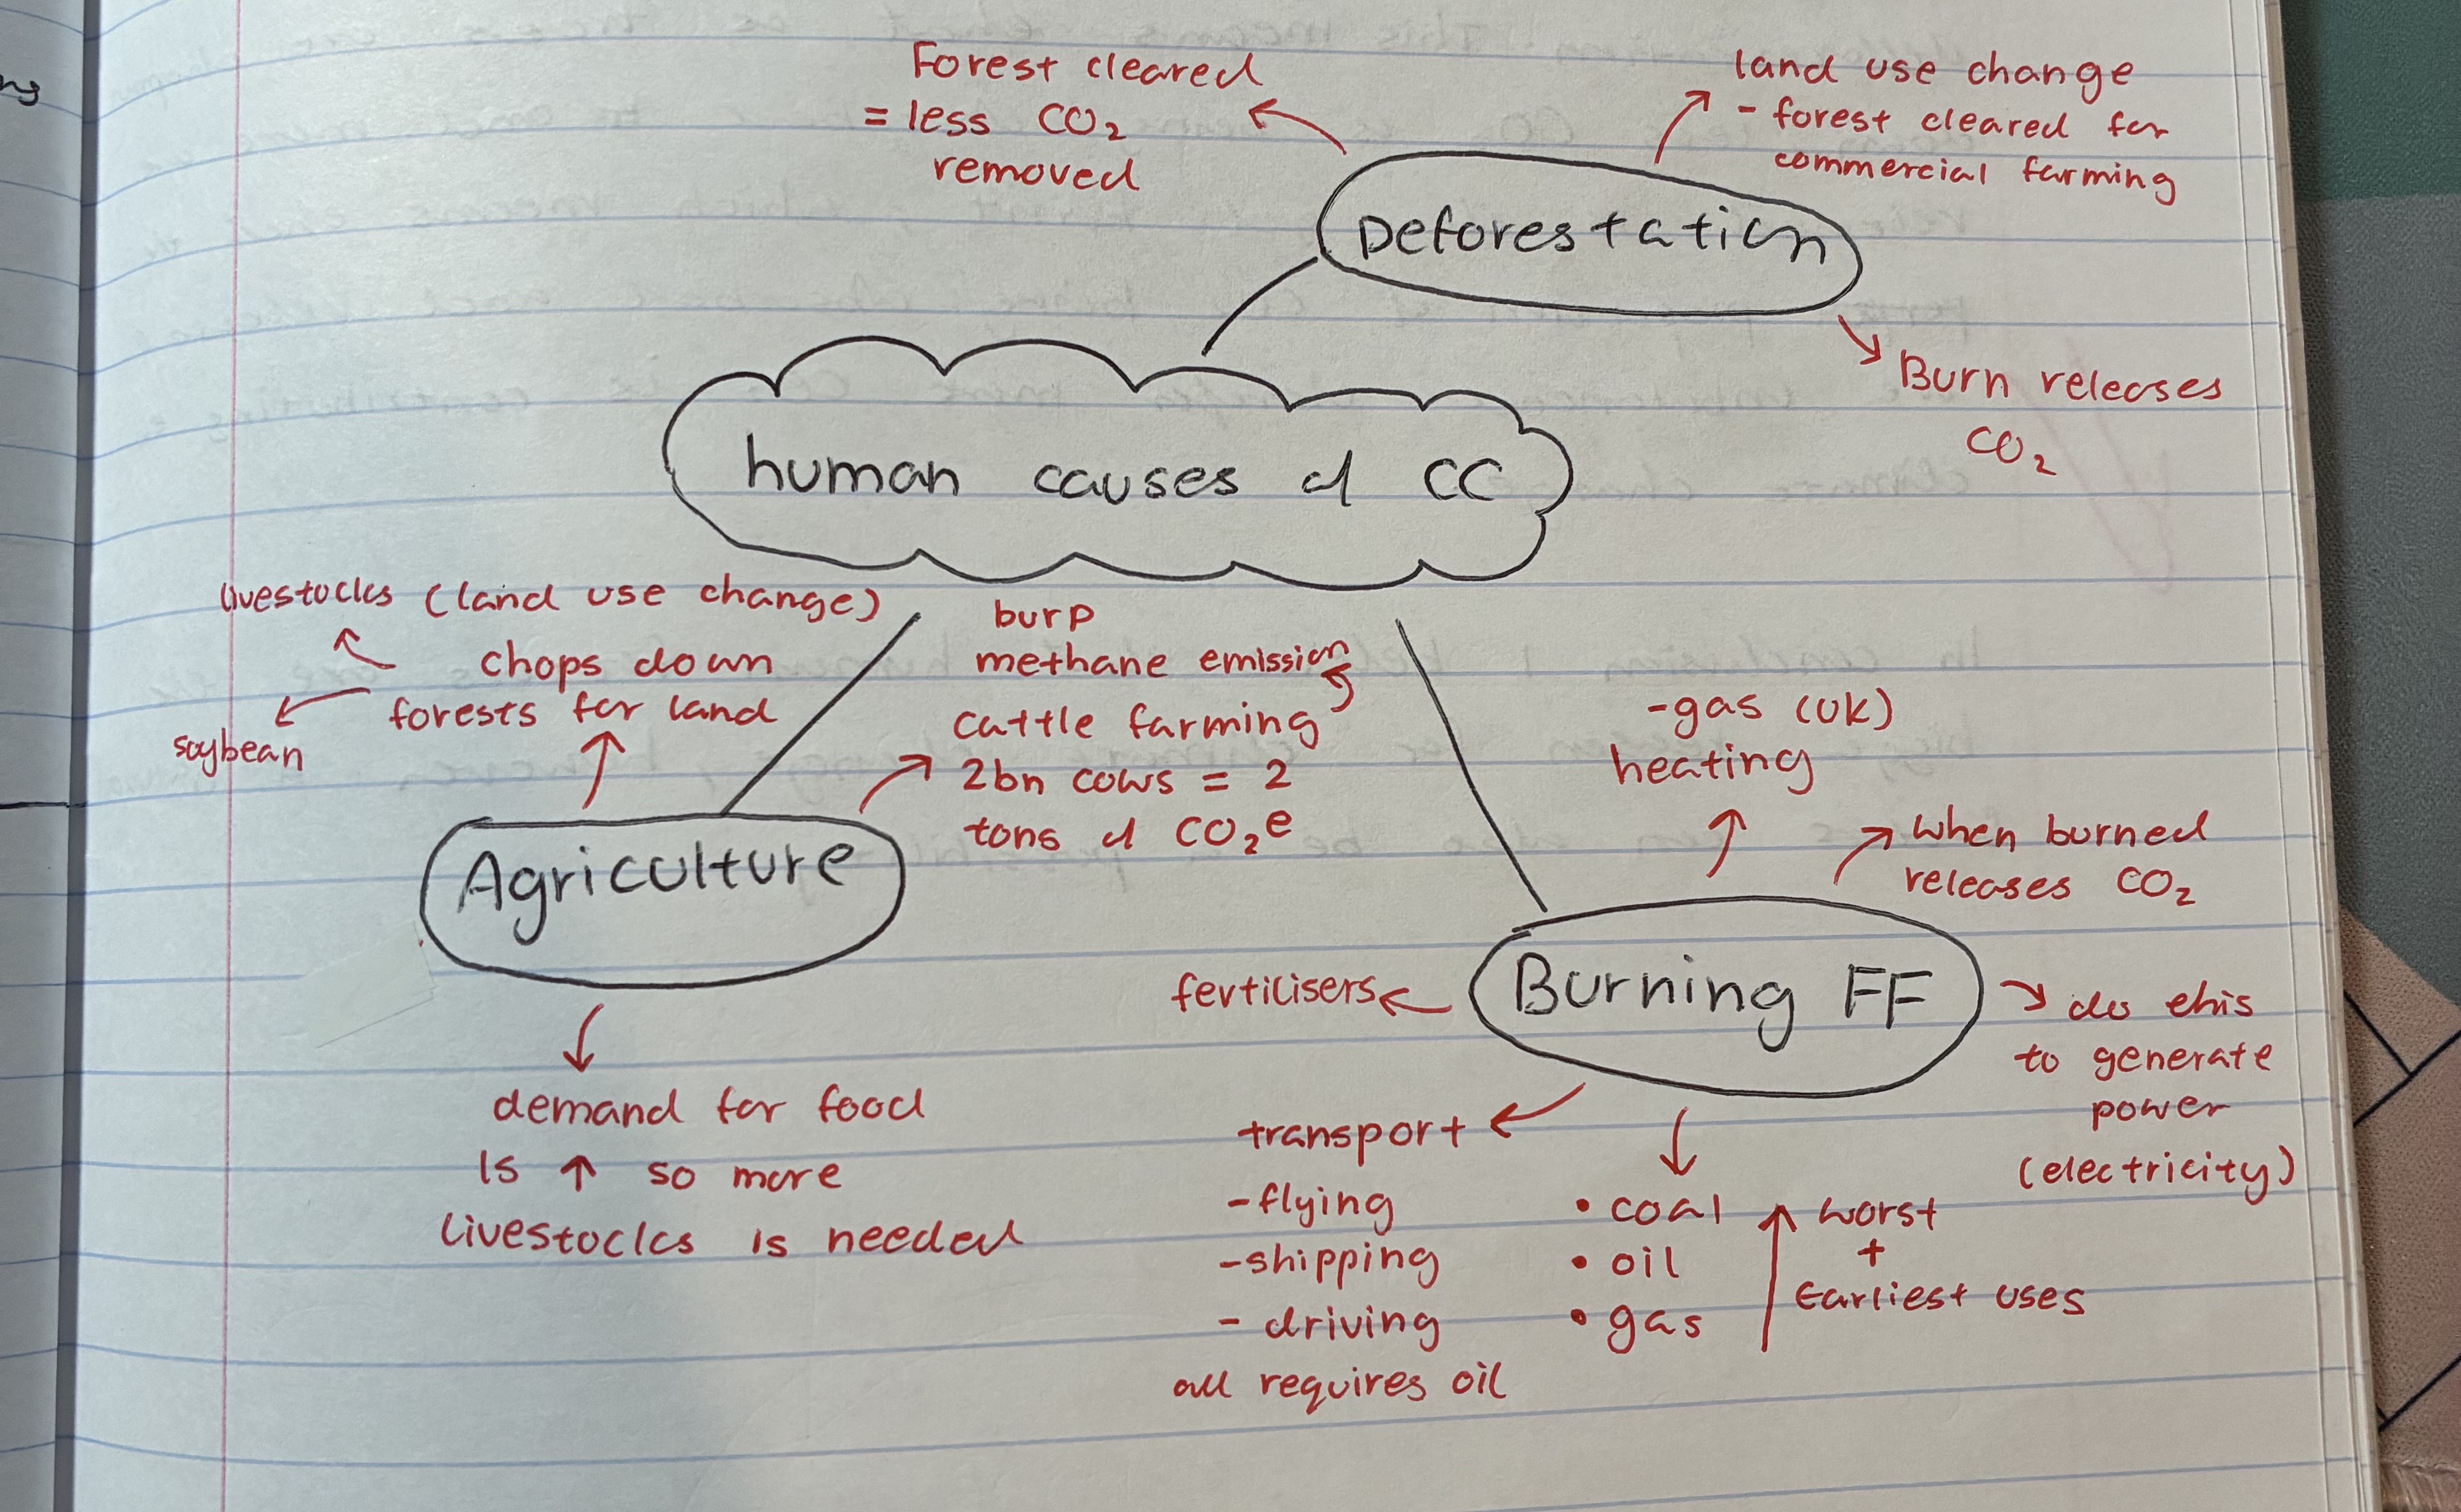 Forest cleared
= less CO₂
removed
land use change
- forest cleared for
commercial farming
Deforestation
Burn releases
CO₂
human causes of CC
livestocks (land use change)
chops down
forests for land
soybean
burp
methane emission
cattle farming
2bn cows = 2
tons of CO₂e
Agriculture
demand for food
Is ↑ so more
livestocks is needed
-gas (UK)
heating
when burned
releases CO₂
Burning FF
fertilisers
do this
to generate
power
(electricity)
transport
-flying
-shipping
- driving
all requires oil
• coal
• oil
• gas
worst
+
Earliest uses